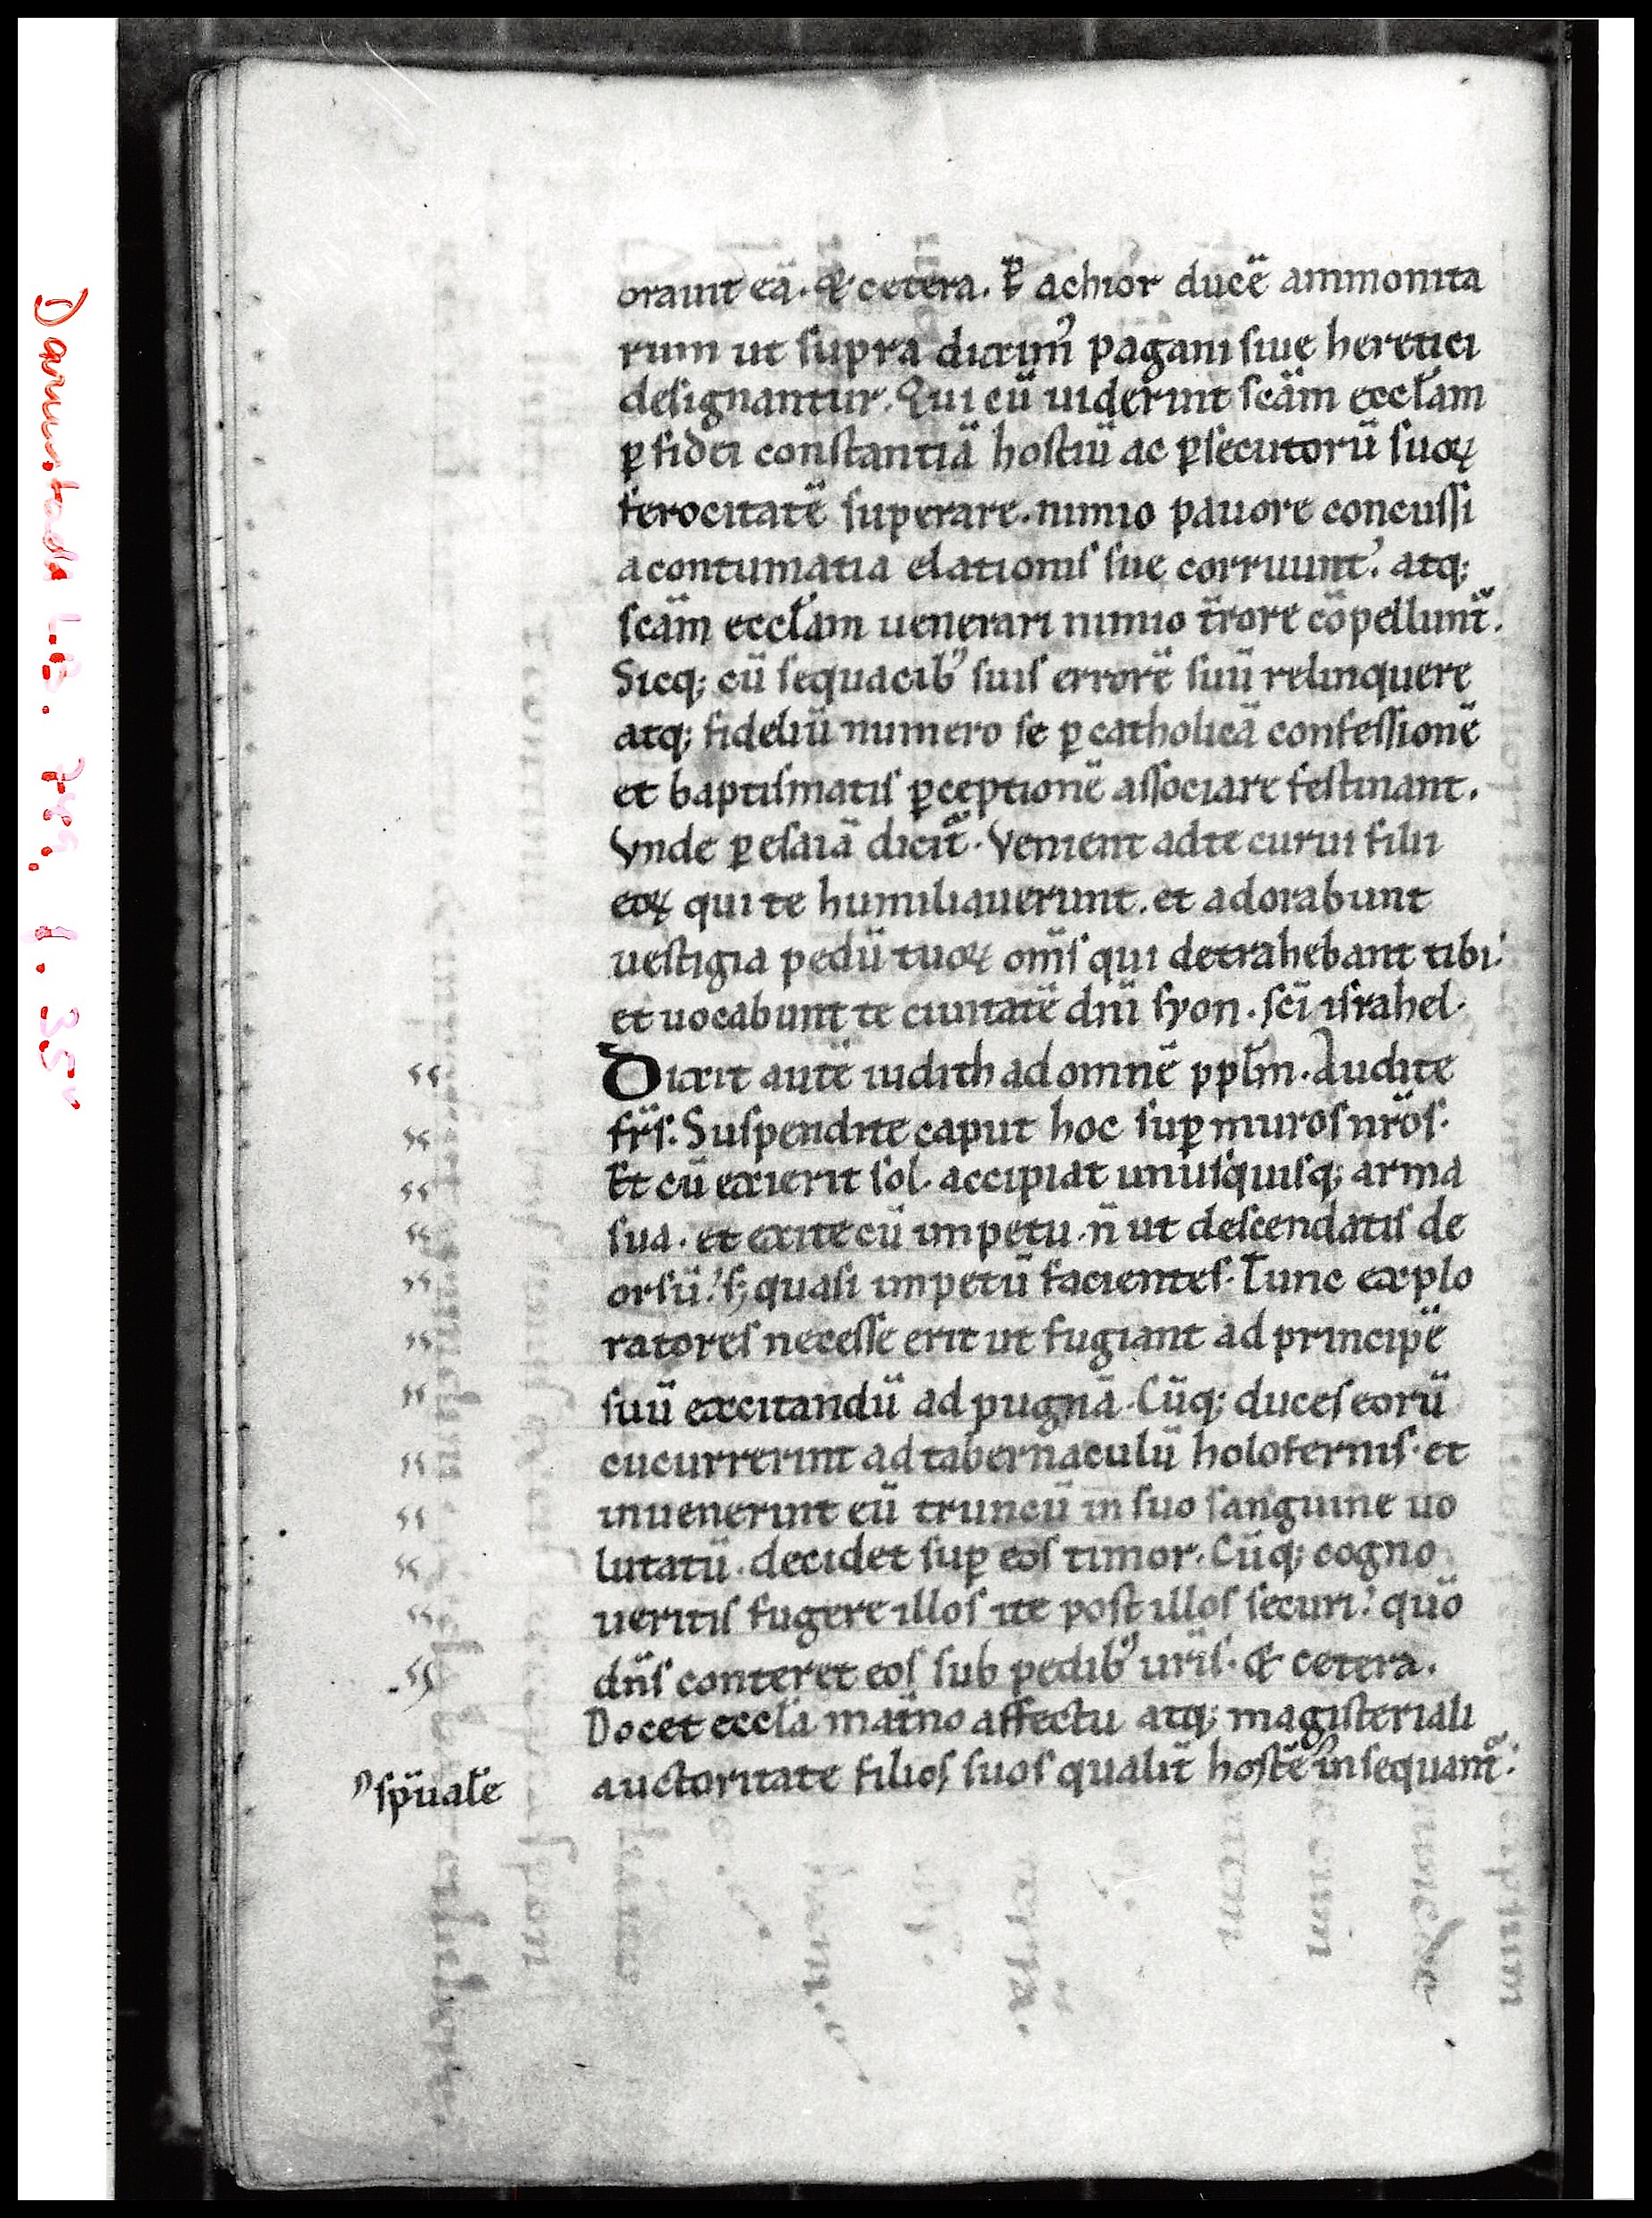 Darmstadt LB. 749, f. 35v
orauit eā. & cetera. P̄ achior ducē ammonita
rum ut supra diximꝰ pagani siue heretici
designantur. Qui cū uiderint scām eccłam
ꝑ fidei constantiā hostiū ac ꝑsecutorū suoꝝ
ferocitatē superare. nimio pauore concussi
a contumatia elationis sue corruunt. atq;
scām eccłam uenerari nimio t̄rore cōpellunt̄.
Sicq; cū sequacibꝰ suis errorē suū relinquere
atq; fideliū numero se ꝑ catholicā confessionē
et baptismatis ꝑceptionē associare festinant.
Vnde ꝑ esaiā dicit̄. Venient ad te curui filii
eoꝝ qui te humiliauerunt. et adorabunt
uestigia pedū tuoꝝ om̄s qui detrahebant tibi.
et uocabunt te ciuitatē dn̄i syon. sc̄i israhel.
Dixit autē iudith ad omnē ppłm. Audite
fr̄s. Suspendite caput hoc suꝑ muros nr̄os.
Et cū exierit sol. accipiat unusquisq; arma
sua. et exite cū impetu. n̄ ut descendatis de
orsū. s; quasi impetū facientes. Tunc explo
ratores necesse erit ut fugiant ad principē
suū excitandū ad pugnā. Cūq; duces eorū
cucurrerint ad tabernaculū holofernis. et
inuenerint eū truncū in suo sanguine uo
lutatū. decidet suꝑ eos timor. Cūq; cogno
ueritis fugere illos ite post illos securi. quō
dn̄s conteret eos sub pedibꝰ ur̄is. & cetera.
Docet eccła mat̄no affectu atq; magisteriali
auctoritate filios suos qualit̄ hostē insequant̄.
sp̄uałe